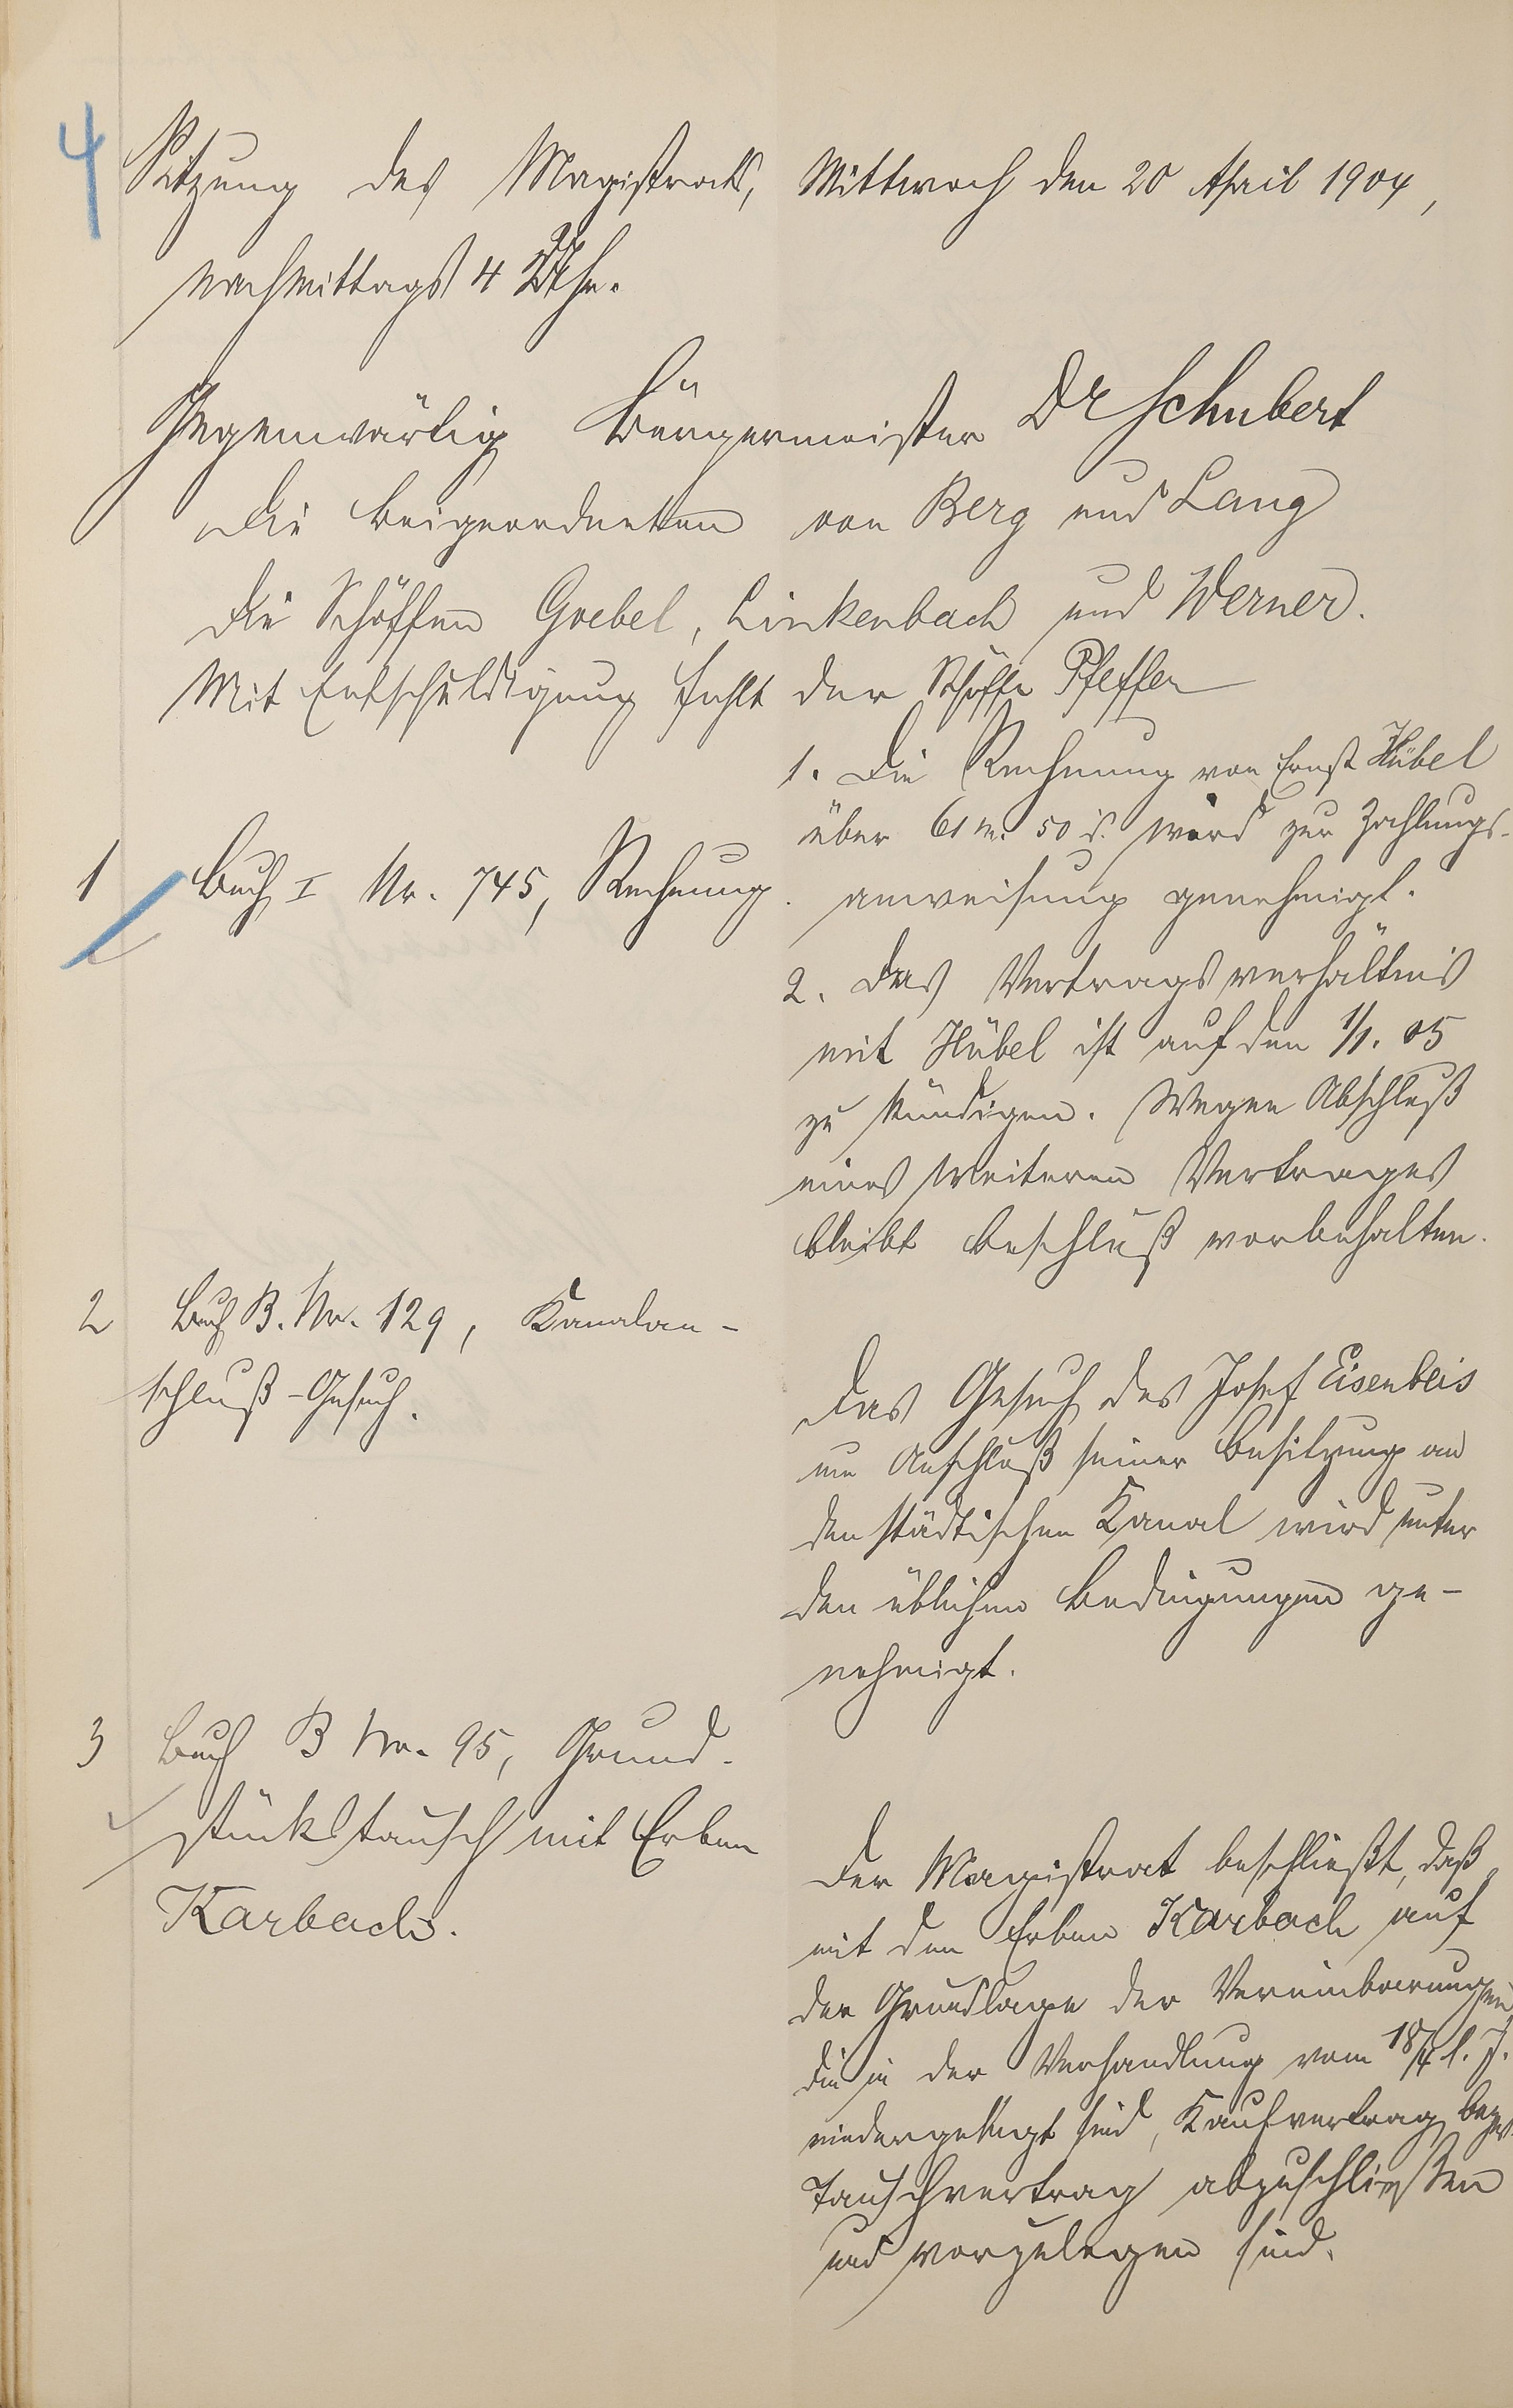 4
Sitzung des Magistrats, Mittwoch den 20 April 1904,
nachmittags 4 Uhr.
Gegenwärtig Bürgermeister Dr Schubert
Die Beigeordneten von Berg und Lang
Die Schöffen Goebel, Linkenbach und Werner.
Mit Entschuldigung fehlt der Schöffe Pfeffer
1 Buch I Nr. 745, Rechnung.
1. Die Rechnung von Ernst Hübel
über 61 M. 50 d. wird zur Zahlungs-
anweisung genehmigt.
2. Das Vertragsverhältnis
mit Hübel ist auf den 1/1. 05
zu kündigen. Wegen Abschluß
eines weiteren Vertrages
bleibt Beschluß vorbehalten.
2 Buch B. Nr. 129, Kanalan-
schluß-Gesuch.
Das Gesuch des Josef Eisenbeis
um Anschluß seiner Besitzung an
den städtischen Kanal wird unter
den üblichen Bedingungen ge-
nehmigt.
3 Buch B Nr. 95, Grund-
stückstausch mit Erben
Karbach.
Der Magistrat beschließt, daß
mit den Erben Karbach auf
der Grundlage der Vereinbarungen,
die in der Verhandlung vom 18/4 l. J.
niedergelegt sind, Kaufvertrag bezw.
Tauschvertrag abzuschließen
und vorzulegen sind.